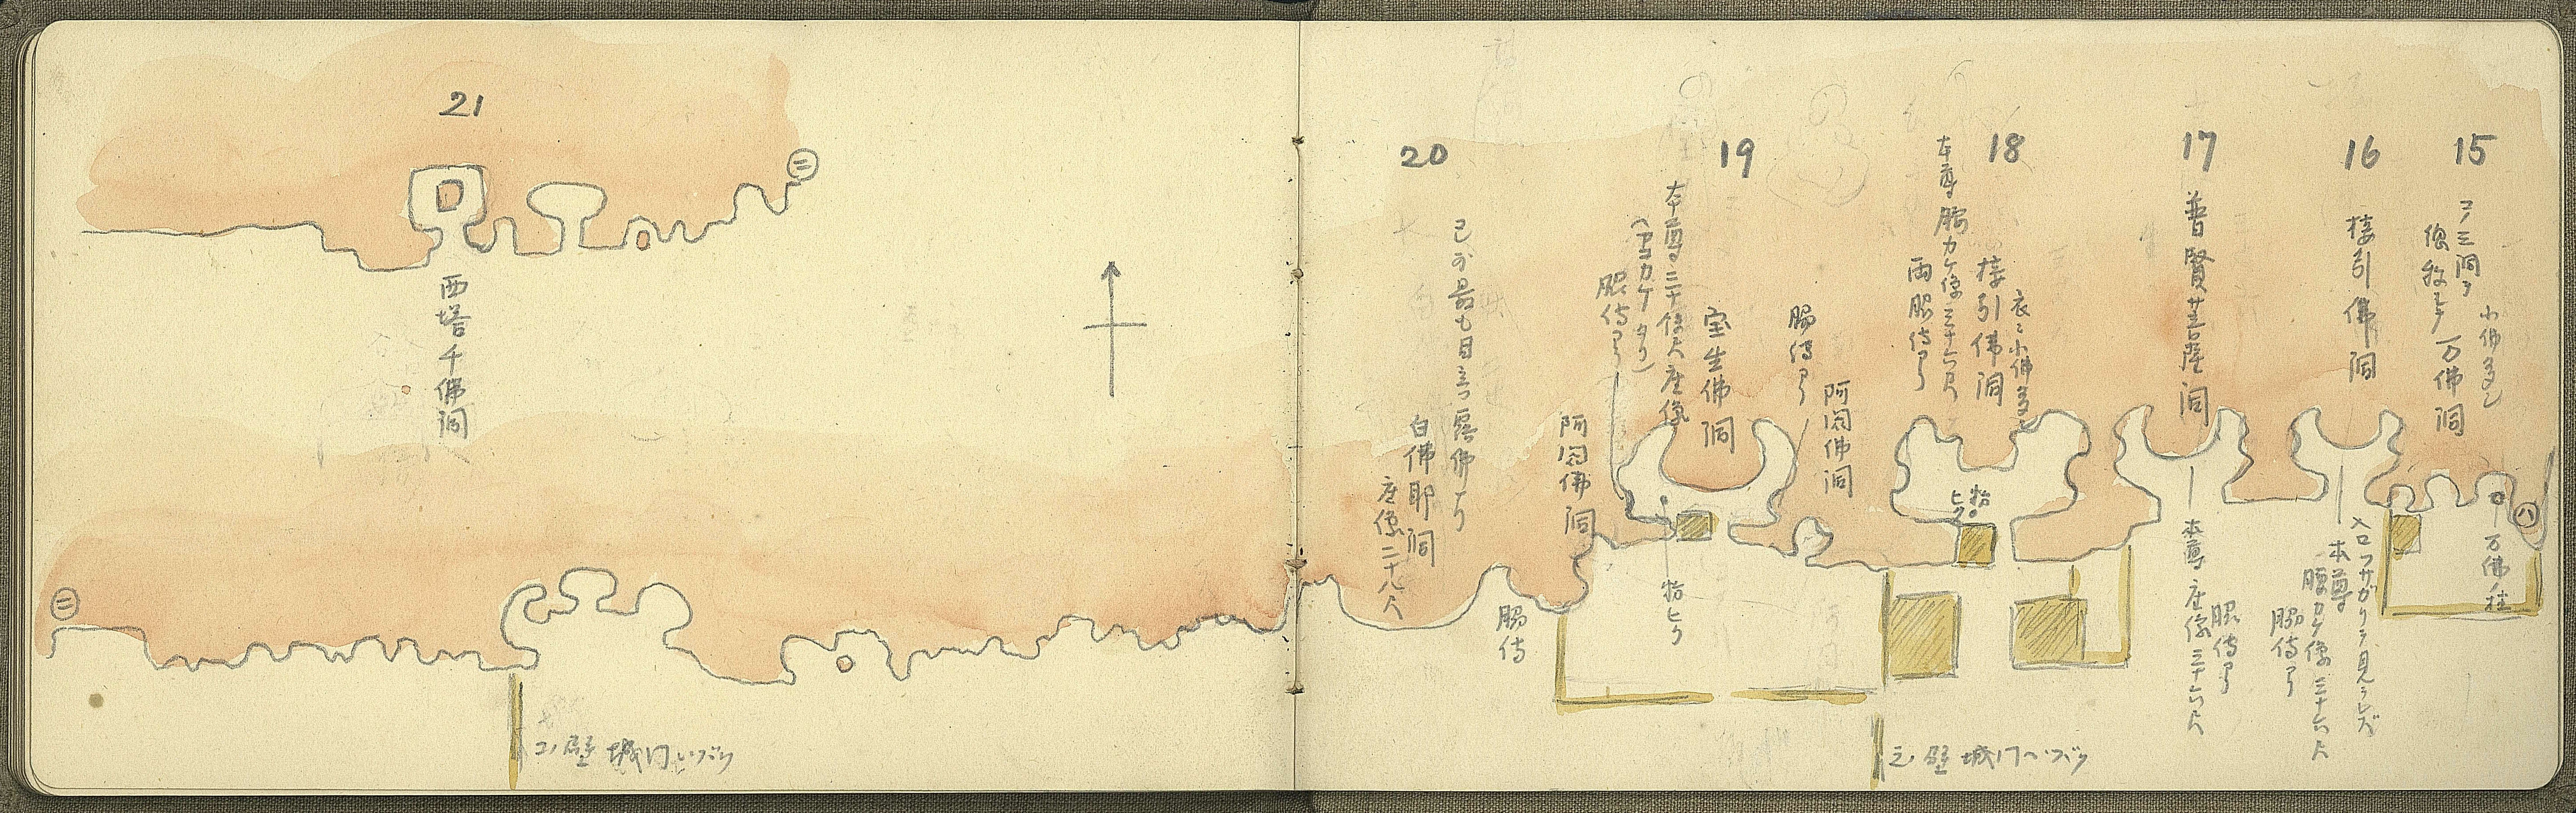 15
コノ三洞ヲ
総称シテ万佛洞
小佛多シ
万佛柱
㈧
16
接引佛洞
入口フサガリテ見ラレズ
本尊
腰カケ像三十六尺
脇侍アリ
17
普賢菩薩洞
本尊座像三十六尺
脇侍アリ
18
衣ニ小佛多シ
接引佛洞
本尊腰カケ像三十六尺
両脇侍アリ
拾ヒク
19
阿閦佛洞
脇侍アリ
宝生佛洞
本尊二十俵尺座像
脇侍アリ
阿閦佛洞
脇侍
拾ヒク
20
已ガ最も目立ツ露佛ナリ
白佛耶洞
座像二十八尺
21
西塔千佛洞
㊁
㊁
コノ壁城門ヘツヅク
コノ壁城門ヘツヅク